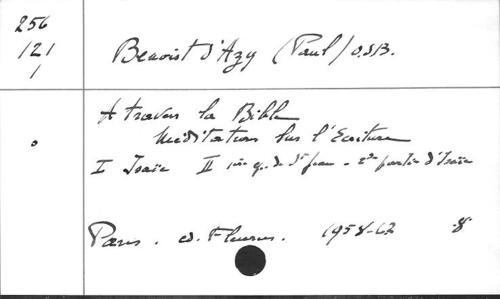 256
121
1
Benoist d'Azy (Paul) O.S.B.
A travers la Bible
Méditations sur l'Ecriture
I Isaïe II 1ère ep. de St Jean - 2de partie d'Isaïe
Paris. ed. Fleurus. 1958-62 8°